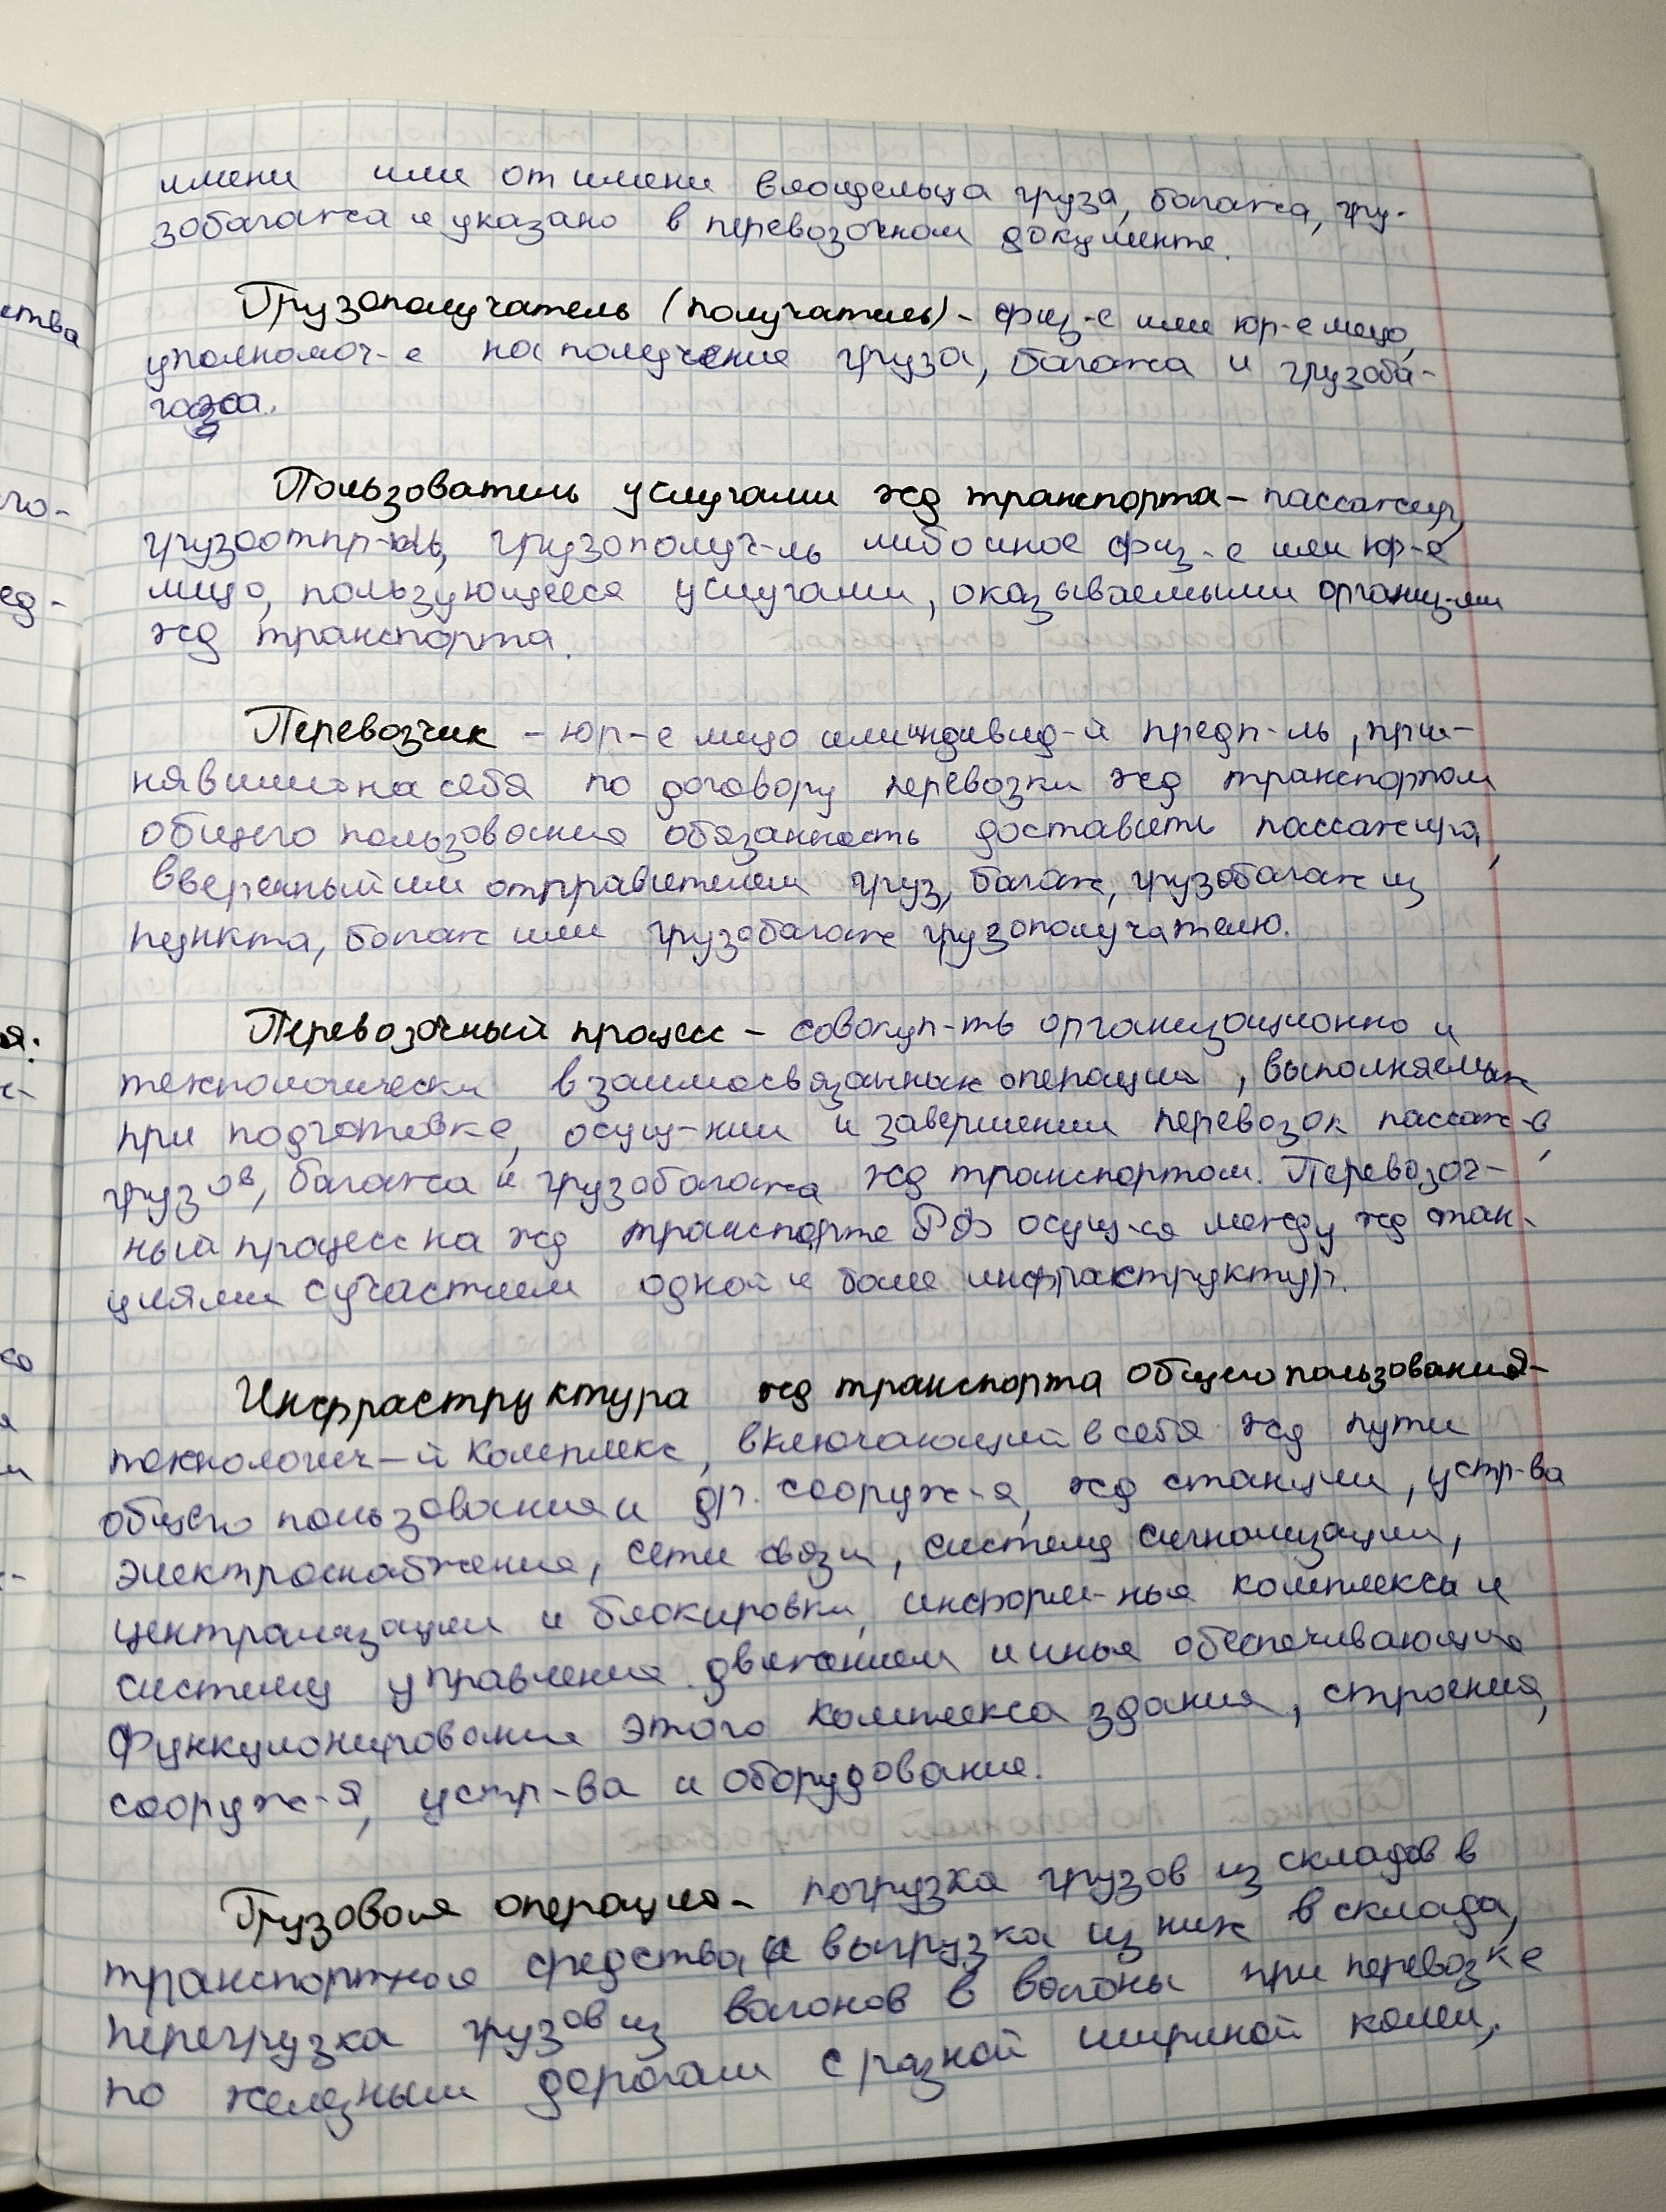 имени или от имени владельца груза, багажа, гру-
зобагажа и указано в перевозочном документе.
Грузополучатель (получатель) - физ-е или юр-е лицо,
уполномоч-е на получение груза, багажа и грузоба-
гажа.
Пользователь услугами жд транспорта - пассажир,
грузоотпр-ль, грузополуч-ль либо иное физ-е или юр-е
лицо, пользующееся услугами, оказываемыми организ-ями
жд транспорта.
Перевозчик - юр-е лицо или индивид-й предп-ль, при-
нявший на себя по договору перевозки жд транспортом
общего пользования обязанность доставить пассажира,
вверенный им отправителем груз, багаж, грузобагаж из
пункта, багаж или грузобагаж грузополучателю.
Перевозочный процесс - совокуп-ть организационно и
технологически взаимосвязанных операций, выполняемых
при подготовке, осущ-нии и завершении перевозок пассаж-в,
грузов, багажа и грузобагажа жд транспортом. Перевозоч-
ный процесс на жд транспорте РФ осущ-ся между жд стан-
циями с участием одной и более инфрактруктур.
Инфраструктура жд транспорта общего пользования -
технологич-й комплекс, включающий в себя жд пути
общего пользования и др. сооруж-я, жд станции, устр-ва
электроснабжения, сети связи, системы сигнализации,
централизации и блокировки, информ-ные комплексы и
систему управления движением и иные обеспечивающие
функционирование этого комплекса здания, строения,
сооруж-я, устр-ва и оборудование.
Грузовая операция - погрузка грузов из складов в
транспортные средства и выгрузка из них в склады,
перегрузка грузов из вагонов в вагоны при перевозке
по железным дорогам с разной шириной колеи,
ства
го-
ед-
я:
х-
со
я
м